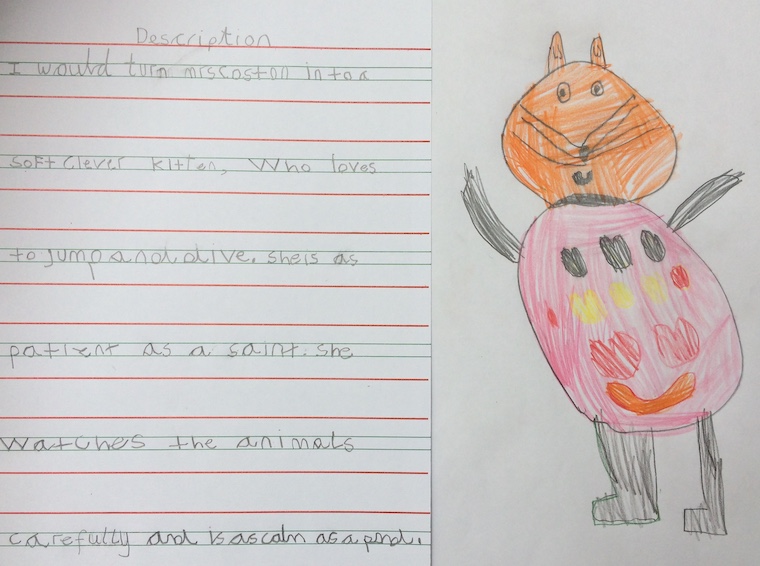 Description
I would turn mrscoston into a
soft clever kitten, who loves
to jump and dive. she is as
patient as a saint. she
watches the animals
carefully and is as calm as a pond.